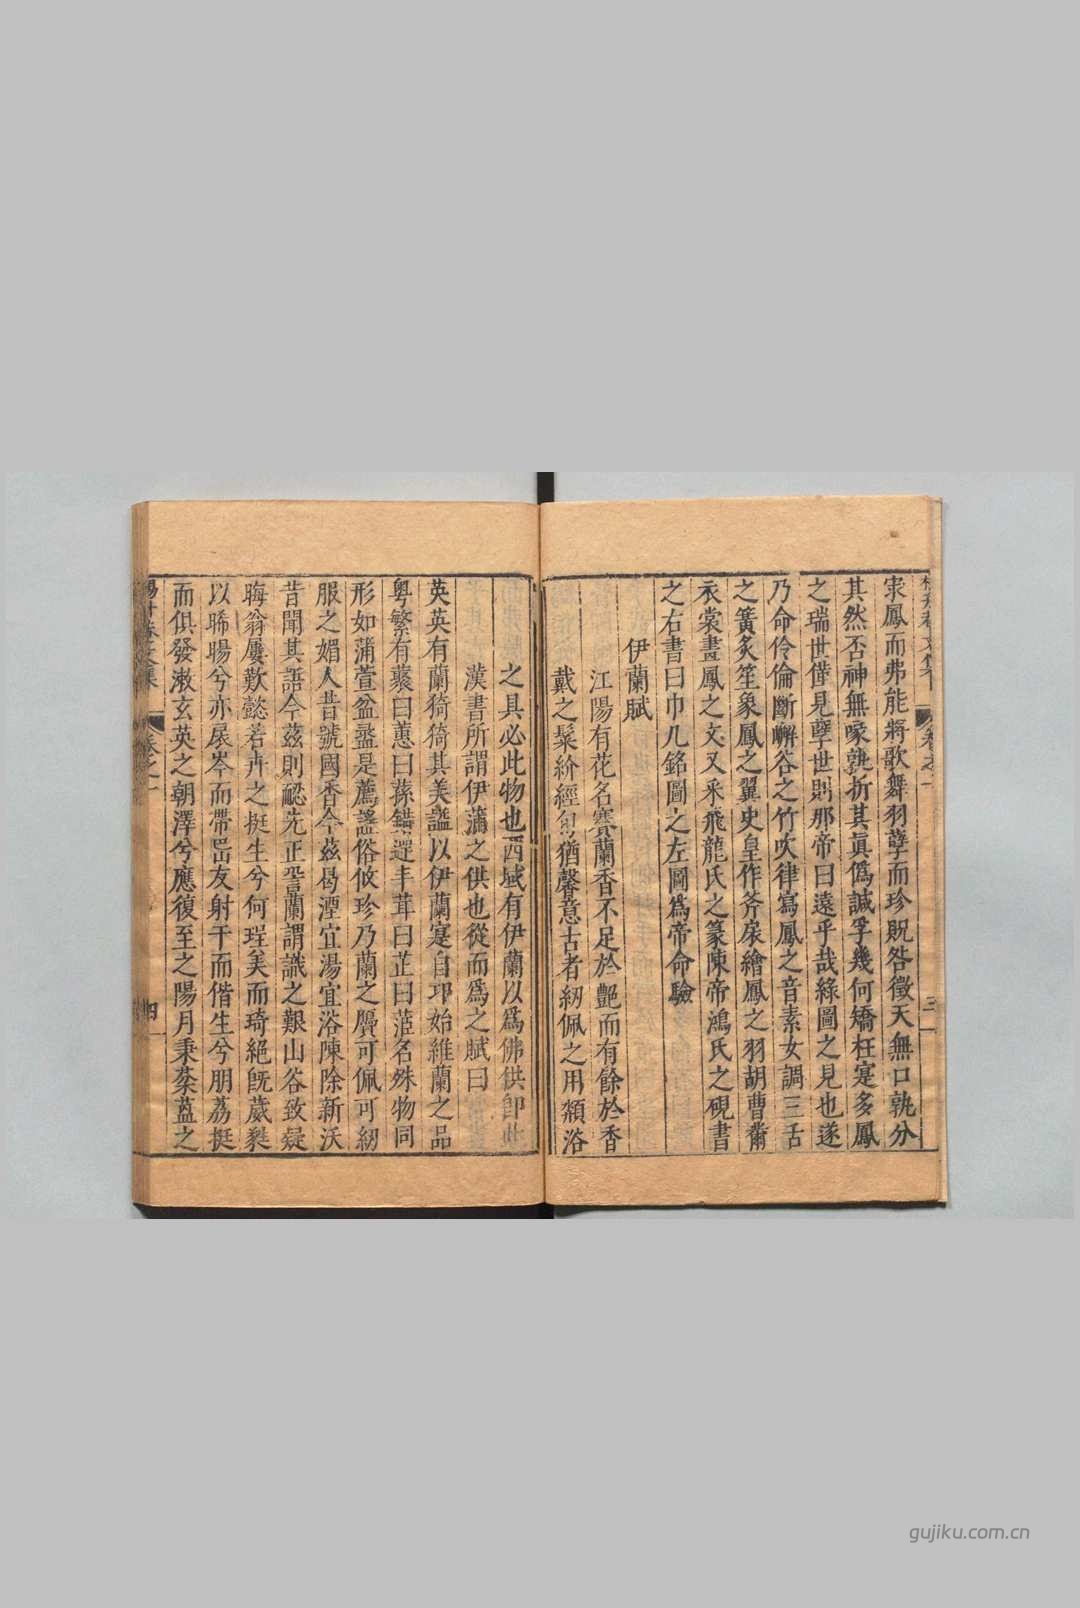 宷鳳而弗能將歌舞羽孽而珍貺咎徵天無口孰分
其然否神無喙孰折其真偽誠孚幾何矯枉寔多鳳
之瑞世僅見孽世則那帝曰遠乎哉綠圖之見也遂
乃命伶倫斷嶰谷之竹吹律寫鳳之音素女調三舌
之簧炙笙象鳳之翼史皇作斧扆繪鳳之羽胡曹黹
衣裳畫鳳之文又采飛龍氏之篆陳帝鴻氏之硯書
之右書曰巾几銘圖之左圖爲帝命驗
伊蘭賦
江陽有花名賽蘭香不足於艷而有餘於香
戴之髹紒經旬猶馨意古者紉佩之用頮浴
之具必此物也西域有伊蘭以爲佛供即此
漢書所謂伊蒲之供也從而爲之賦曰
英英有蘭猗猗其美謐以伊蘭寔自邛始維蘭之品
粤繁有叢曰蕙曰蓀錯遝丰茸曰芷曰茝名殊物同
形如蒲萱盆盤是薦謐俗攸珍乃蘭之贗可佩可紉
服之媚人昔號國香今茲曷湮宜湯宜浴陳除新沃
昔聞其語今茲則覿先正訔蘭謂識之艱山谷致疑
晦翁屢歎懿若卉之挺生兮何珵美而琦絕旣葳蕤
以晞暘兮亦扆岑而帶嵒友射干而偕生兮朋荔挺
而俱發漱玄英之朝澤兮應復至之陽月秉棻葢之
卷之一
四
三
gujiku.com.cn